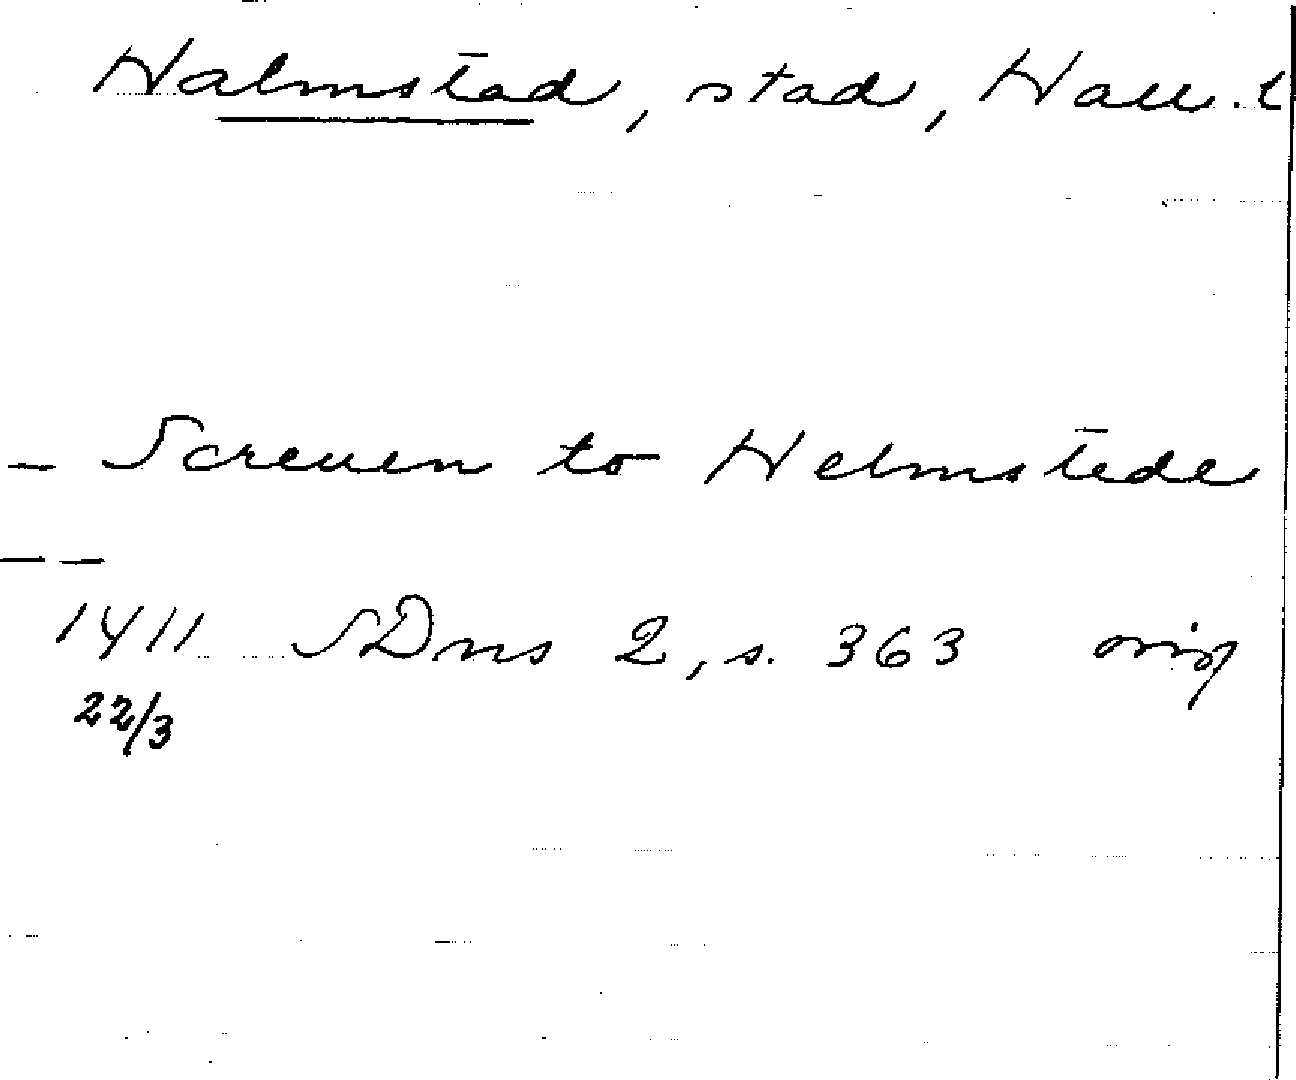 Halmstad, stad, Hall. l
– Screuen to Helmstede
– –
1411 SDns 2, s. 363 orig
22/3